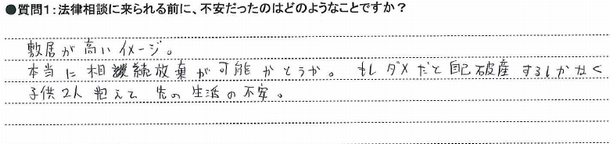 ●質問1:法律相談に来られる前に、不安だったのはどのようなことですか?
敷居が高いイメージ。
本当に相続放棄が可能かどうか。もしダメだと自己破産するしかなく
子供2人抱えて先の生活の不安。